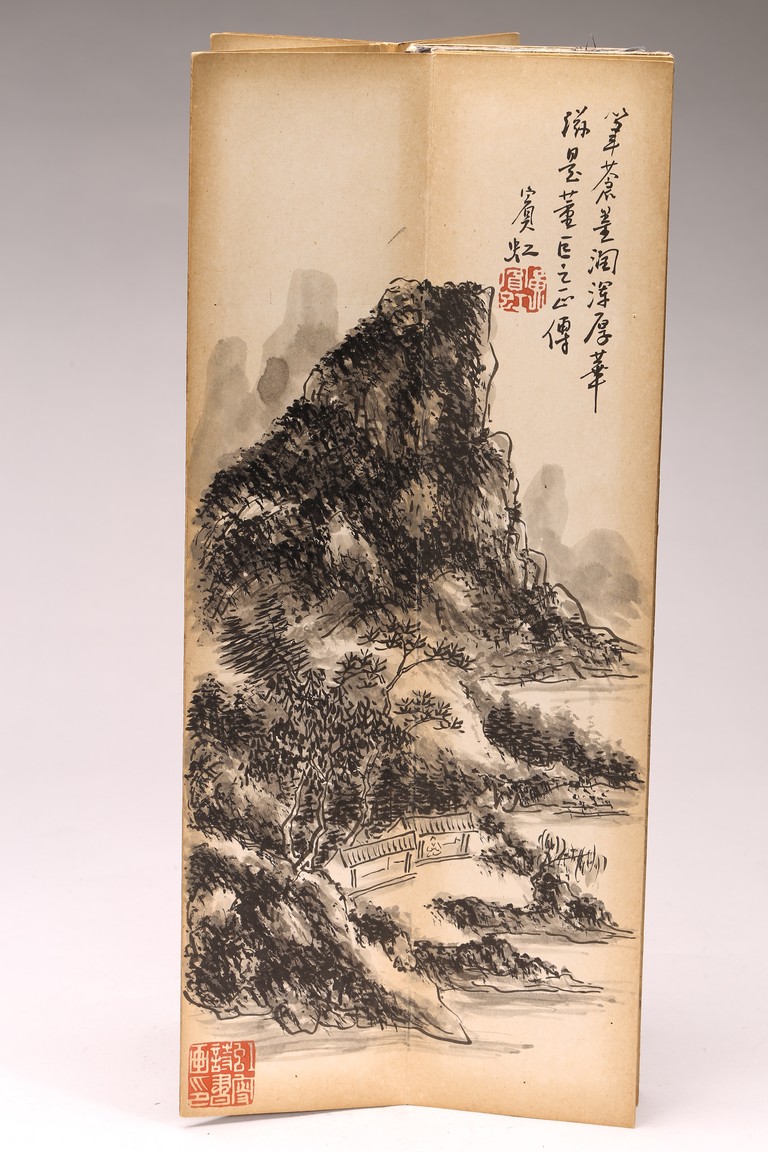 筆蒼墨潤渾厚華
滋是董巨之正傳
賓虹
黃賓虹
詩書
畫印